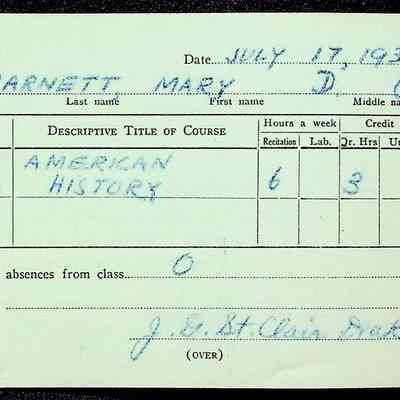 Date JULY 17, 193
ARNETT, MARY D.
Last name First name Middle na
DESCRIPTIVE TITLE OF COURSE Hours a week Credit
Recitation Lab. Qr. Hrs U
AMERICAN 6 3
HISTORY
absences from class O
J. G. St. Clair Drak
(OVER)